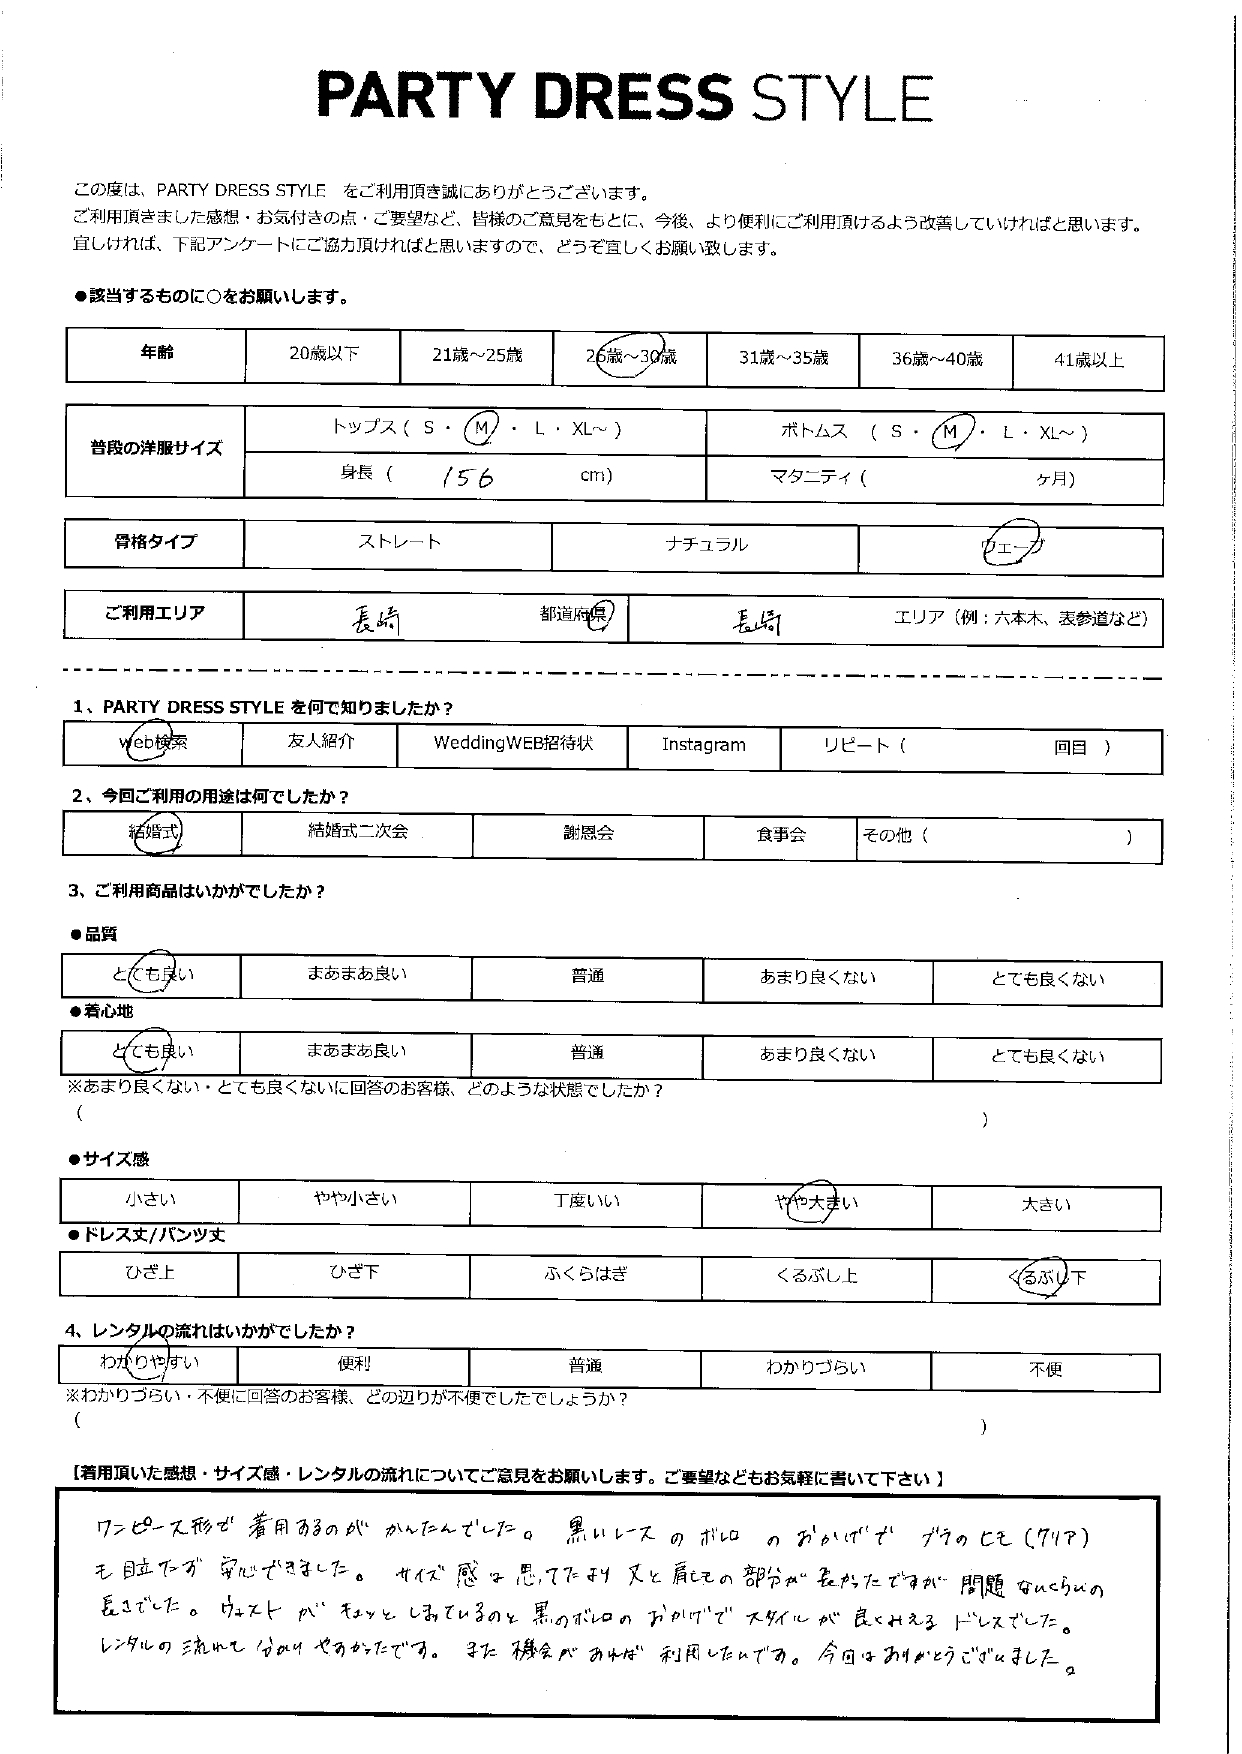 PARTY DRESS STYLE
この度は、PARTY DRESS STYLE をご利用頂き誠にありがとうございます。
ご利用頂きました感想・お気付きの点・ご要望など、皆様のご意見をもとに、今後、より便利にご利用頂けるよう改善していければと思います。
宜しければ、下記アンケートにご協力頂ければと思いますので、どうぞ宜しくお願い致します。
●該当するものに○をお願いします。
年齢 20歳以下 21歳～25歳 26歳～30歳 31歳～35歳 36歳～40歳 41歳以上
普段の洋服サイズ トップス ( S ・ M ・ L ・ XL～ ) ボトムス ( S ・ M ・ L ・ XL～ )
身長 ( 156 cm) マタニティ ( ヶ月)
骨格タイプ ストレート ナチュラル ウェーブ
ご利用エリア 長崎 都道府県 長崎 エリア（例：六本木、表参道など）
1、PARTY DRESS STYLE を何で知りましたか？
web検索 友人紹介 WeddingWEB招待状 Instagram リピート ( 回目 )
2、今回ご利用の用途は何でしたか？
結婚式 結婚式二次会 謝恩会 食事会 その他 ( )
3、ご利用商品はいかがでしたか？
●品質
とても良い まあまあ良い 普通 あまり良くない とても良くない
●着心地
とても良い まあまあ良い 普通 あまり良くない とても良くない
※あまり良くない・とても良くないに回答のお客様、どのような状態でしたか？
( )
●サイズ感
小さい やや小さい 丁度いい やや大きい 大きい
●ドレス丈/パンツ丈
ひざ上 ひざ下 ふくらはぎ くるぶし上 くるぶし下
4、レンタルの流れはいかがでしたか？
わかりやすい 便利 普通 わかりづらい 不便
※わかりづらい・不便に回答のお客様、どの辺りが不便でしたでしょうか？
( )
【着用頂いた感想・サイズ感・レンタルの流れについてご意見をお願いします。ご要望などもお気軽に書いて下さい 】
ワンピース形で 着用するのが かんたんでした。 黒いレース の ボレロ の おかげで ブラの ヒモ (クリア)
も 目立たず 安心できました。 サイズ感は 思ってたより 丈と 肩ヒモの 部分が 長かったですが 問題 ないくらいの
長さでした。 ウェストが キュッと しまっているのと 黒のボレロの おかげで スタイルが 良くみえる ドレスでした。
レンタルの 流れも 分かり やすかったです。 また 機会が あれば 利用したいです。 今回は ありがとうございました。